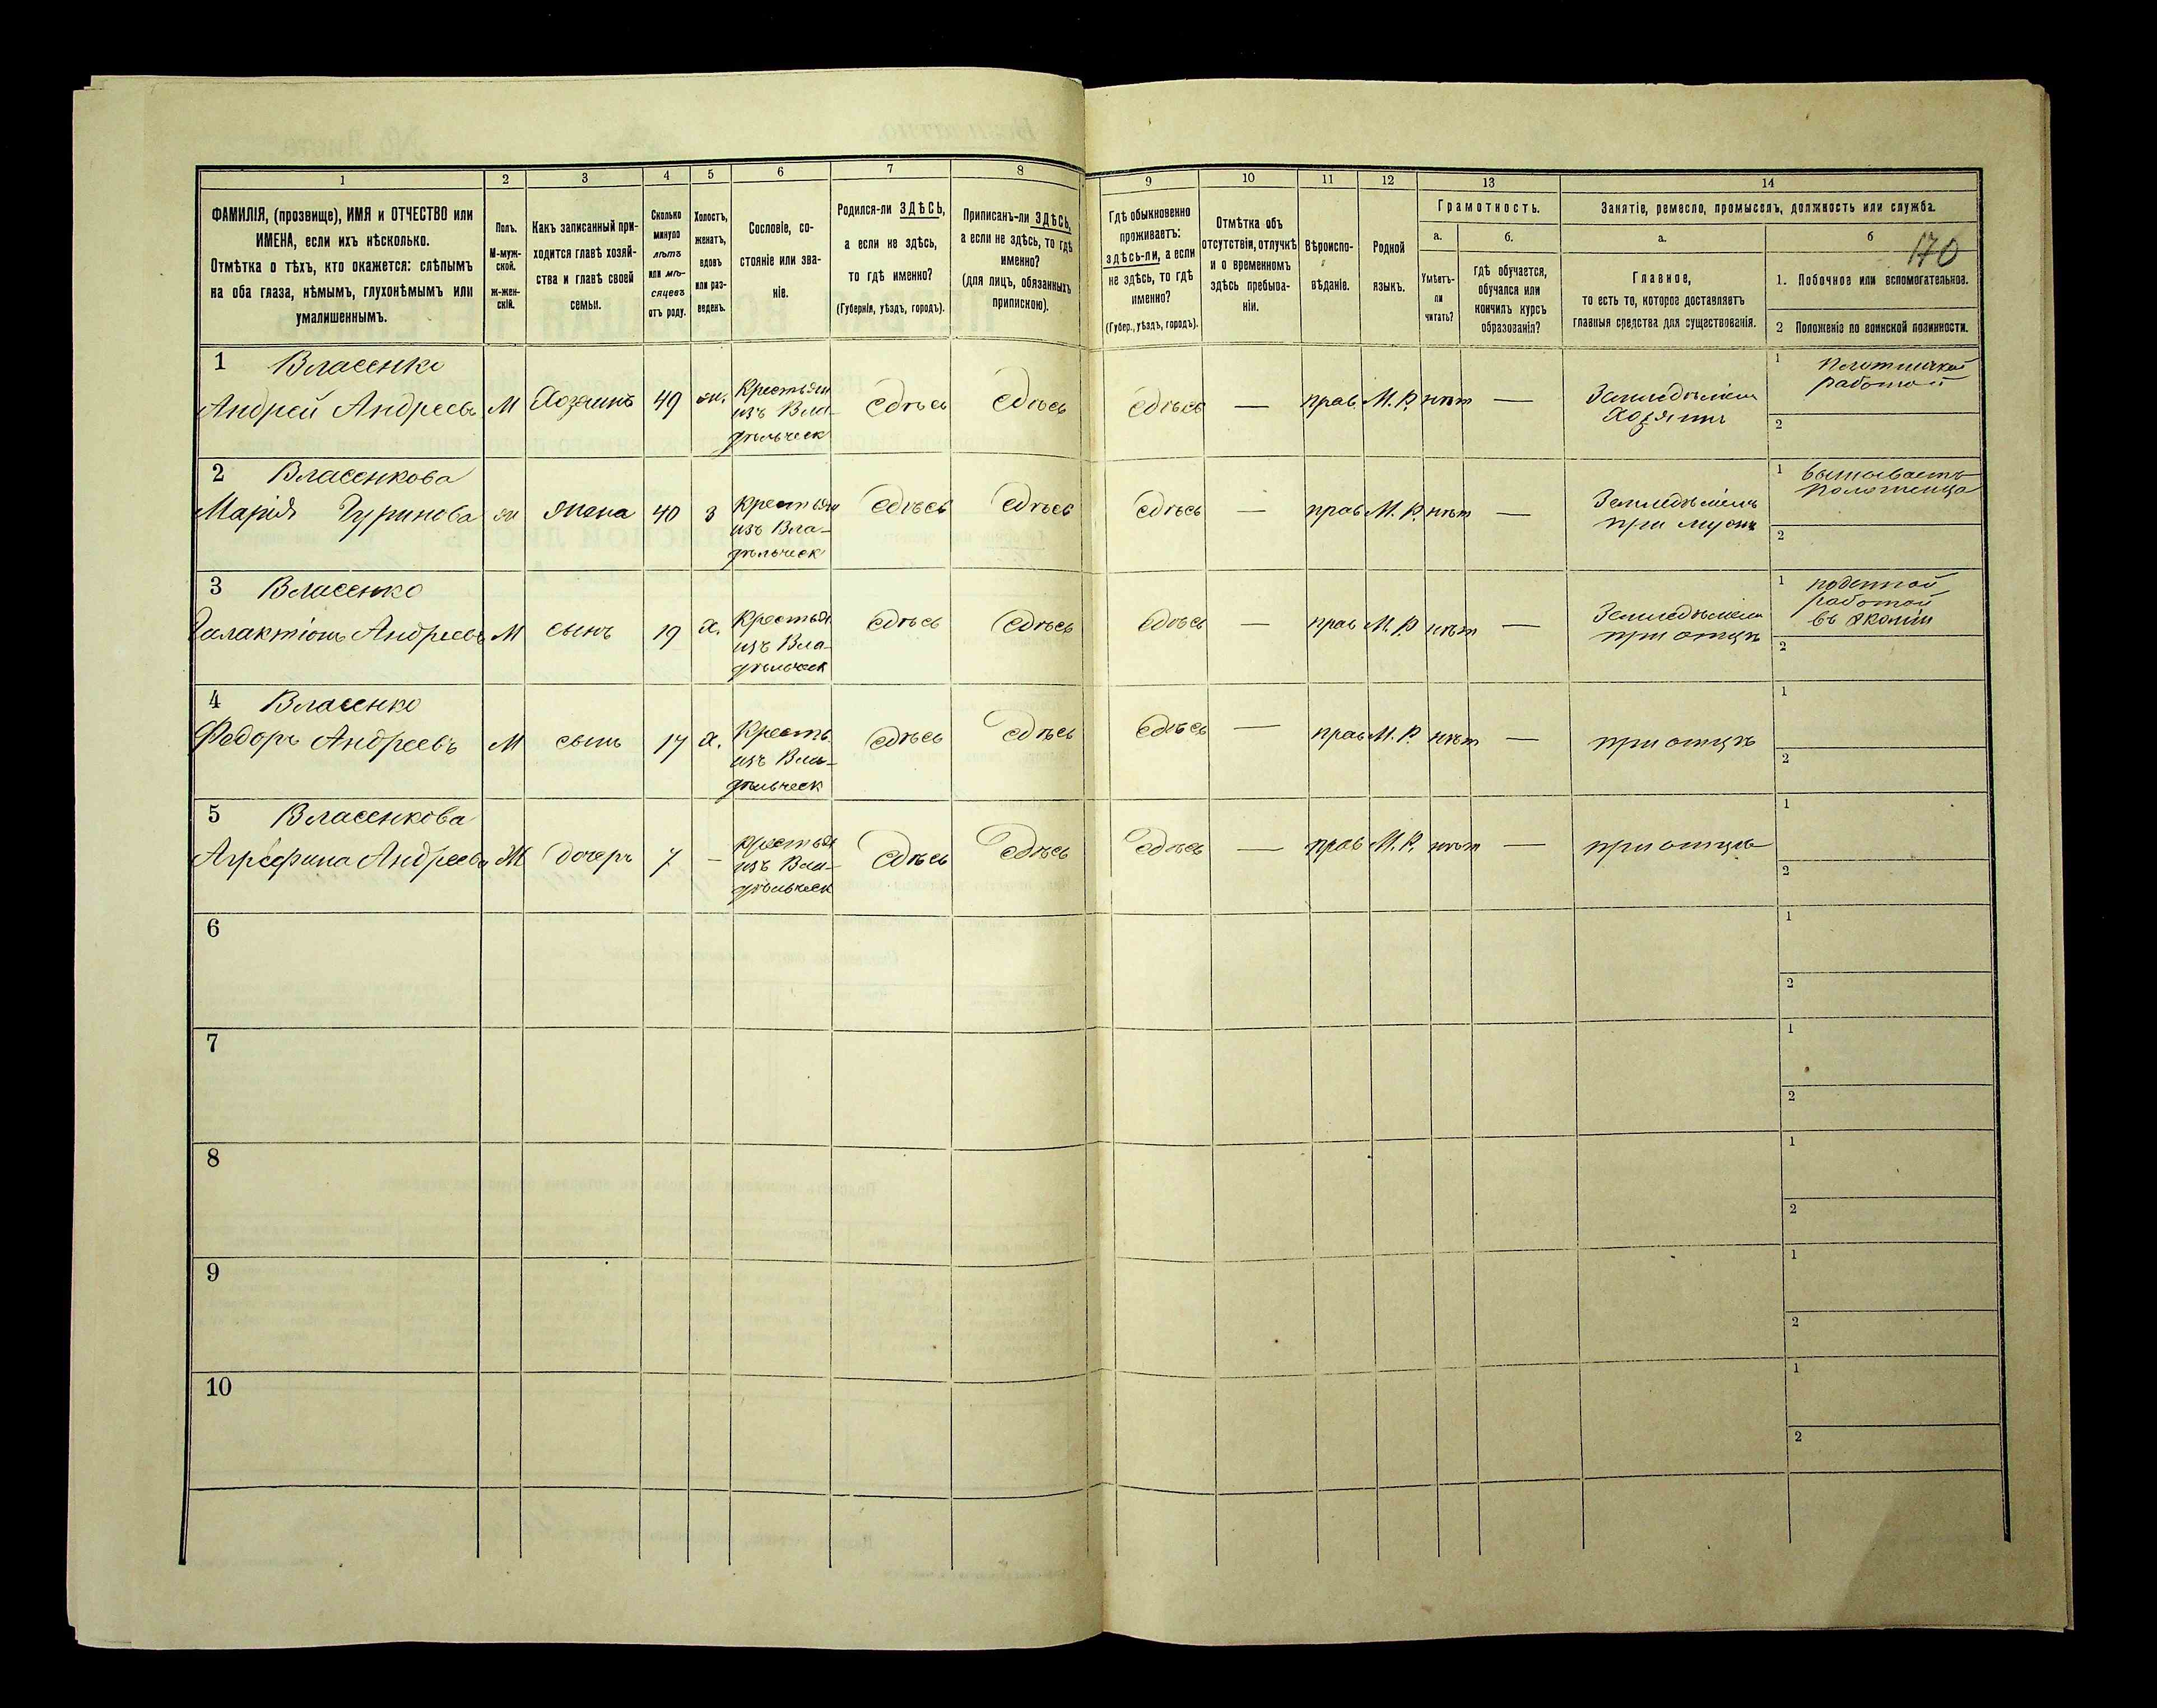 1 2 3 4 5 6 7 8 9 10 11 12 13 14
ФАМИЛІЯ, (прозвище), ИМЯ и ОТЧЕСТВО или
ИМЕНА, если ихъ нѣсколько.
Отмѣтка о тѣхъ, кто окажется: слѣпымъ
на оба глаза, нѣмымъ, глухонѣмымъ или
умалишеннымъ.
Полъ.
М-муж-
ской.
ж-жен-
скій.
Какъ записанный при-
ходится главѣ хозяй-
ства и главѣ своей
семьи.
Сколько
минуло
лѣтъ
или мѣ-
сяцевъ
отъ роду.
Холостъ,
женатъ,
вдовъ
или раз-
веденъ.
Сословіе, со-
стояніе или зва-
ніе.
Родился-ли ЗДѢСЬ,
а если не здѣсь,
то гдѣ именно?
(Губернія, уѣздъ, городъ).
Приписанъ-ли ЗДѢСЬ,
а если не здѣсь, то гдѣ
именно?
(для лицъ, обязанныхъ
припискою).
Гдѣ обыкновенно
проживаетъ:
здѣсь-ли, а если
не здѣсь, то гдѣ
именно?
(Губер., уѣздъ, городъ).
Отмѣтка объ
отсутствіи, отлучкѣ
и о временномъ
здѣсь пребыва-
ніи.
Вѣроиспо-
вѣданіе.
Родной
языкъ.
Грамотность.
а.
Умѣетъ-
ли
читать?
б.
гдѣ обучается,
обучался или
кончилъ курсъ
образованія?
Занятіе, ремесло, промыселъ, должность или служба.
а.
Главное,
то есть то, которое доставляетъ
главныя средства для существованія.
б
170
1. Побочное или вспомогательное.
2 Положеніе по воинской повинности.
1 Власенко
Андрей Андреевъ М Хозяинъ 49 ж. Крестьян
изъ Вла-
дѣльческ
Здѣсь Здѣсь Здѣсь — прав М. Р. нѣт — Земледѣліем
Хозяинъ
1 Плотничкой
работой
2
2 Власенкова
Марія Гуринова ж Жена 40 з Крестьян
изъ Вла-
дѣльческ
Здѣсь Здѣсь Здѣсь — прав М. Р. нѣт — Земледѣліемъ
при мужѣ
1 вышиваетъ
полотенца
2
3 Власенко
Галактіонъ Андреевъ М сынъ 19 х. Крестья
изъ Вла-
дѣльческ
Здѣсь Здѣсь Здѣсь — прав М. Р нѣт — Земледѣліем
при отцѣ
1 поденной
работой
въ Экомім
2
4 Власенко
Федоръ Андреевъ М сынъ 17 х. Кресть
изъ Вла-
дѣльческ
Здѣсь Здѣсь Здѣсь — прав М. Р. нѣт — при отцѣ
1
2
5 Власенкова
Агрефина Андреева Ж дочерь 7 — Крестья
изъ Вла-
дѣльческ
Здѣсь Здѣсь Здѣсь — прав М. Р. нѣт — при отцѣ
1
2
6
1
2
7
1
2
8
1
2
9
1
2
10
1
2